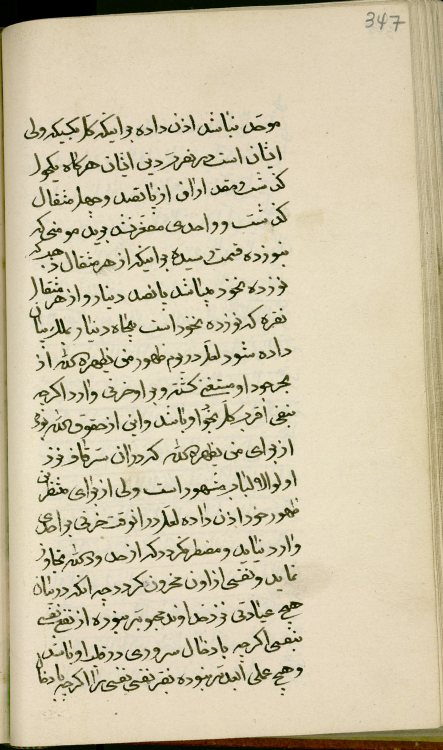 347
موحد نباشد اذن داده بر اینکه کل یکیکه ولی
ایشان است هر نفس در دین ایشان هرگاه یکحول
گذشت و مقدار ان از پانصد و چهل مثقال
گذشت و واحدی مقترن شد بر ید مومنی که
نوزده قیمت رسیده بر اینکه از هر مثقال ذهب که
نوزده نخود میباشد پانصد دینار و از هر مثقال
نقره که نوزده نخود است پنجاه دینار بملک بیان
داده شود لعل در یوم ظهور من یظهره الله از
بحر جود او مستغنی گشته و بر او حزنی وارد اگرچه
بنفس اقرب کل بجوار او باشد و این از حقوق الله بوده
از برای من یظهره الله که در ان سر قاف نزد
اولوالالباب مشهود است ولی از برای متقربین
ظهور خود اذن داده لعل در انوقت حزنی بر احدی
وارد نیاید و مضطر نگردد که از حدود الله تجاوز
نماید و نفسی از اون محزون گردد چه انکه در بیان
هیچ عبادتی نزد خداوند محبوبتر نبوده از نفع نفسی
بنفسی اگرچه بادخال سروری در قلب او باشد
و هیچ عملی ابعدتر نبوده نفسی نفسی را اگرچه بادخال